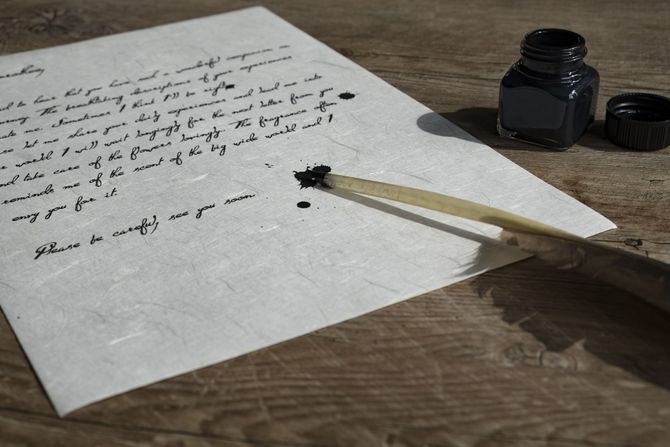 to hear that you have met a wonderful companion on
The breathtaking descriptions of your experiences
me. Sometimes I think I'll be right
let me share your daily experiences and lead me into
world I will wait longingly for the next letter from you
and take care of the flowers lovingly. The fragrance often
reminds me of the scent of the big wide world and I
envy you for it.
Please be careful, see you soon